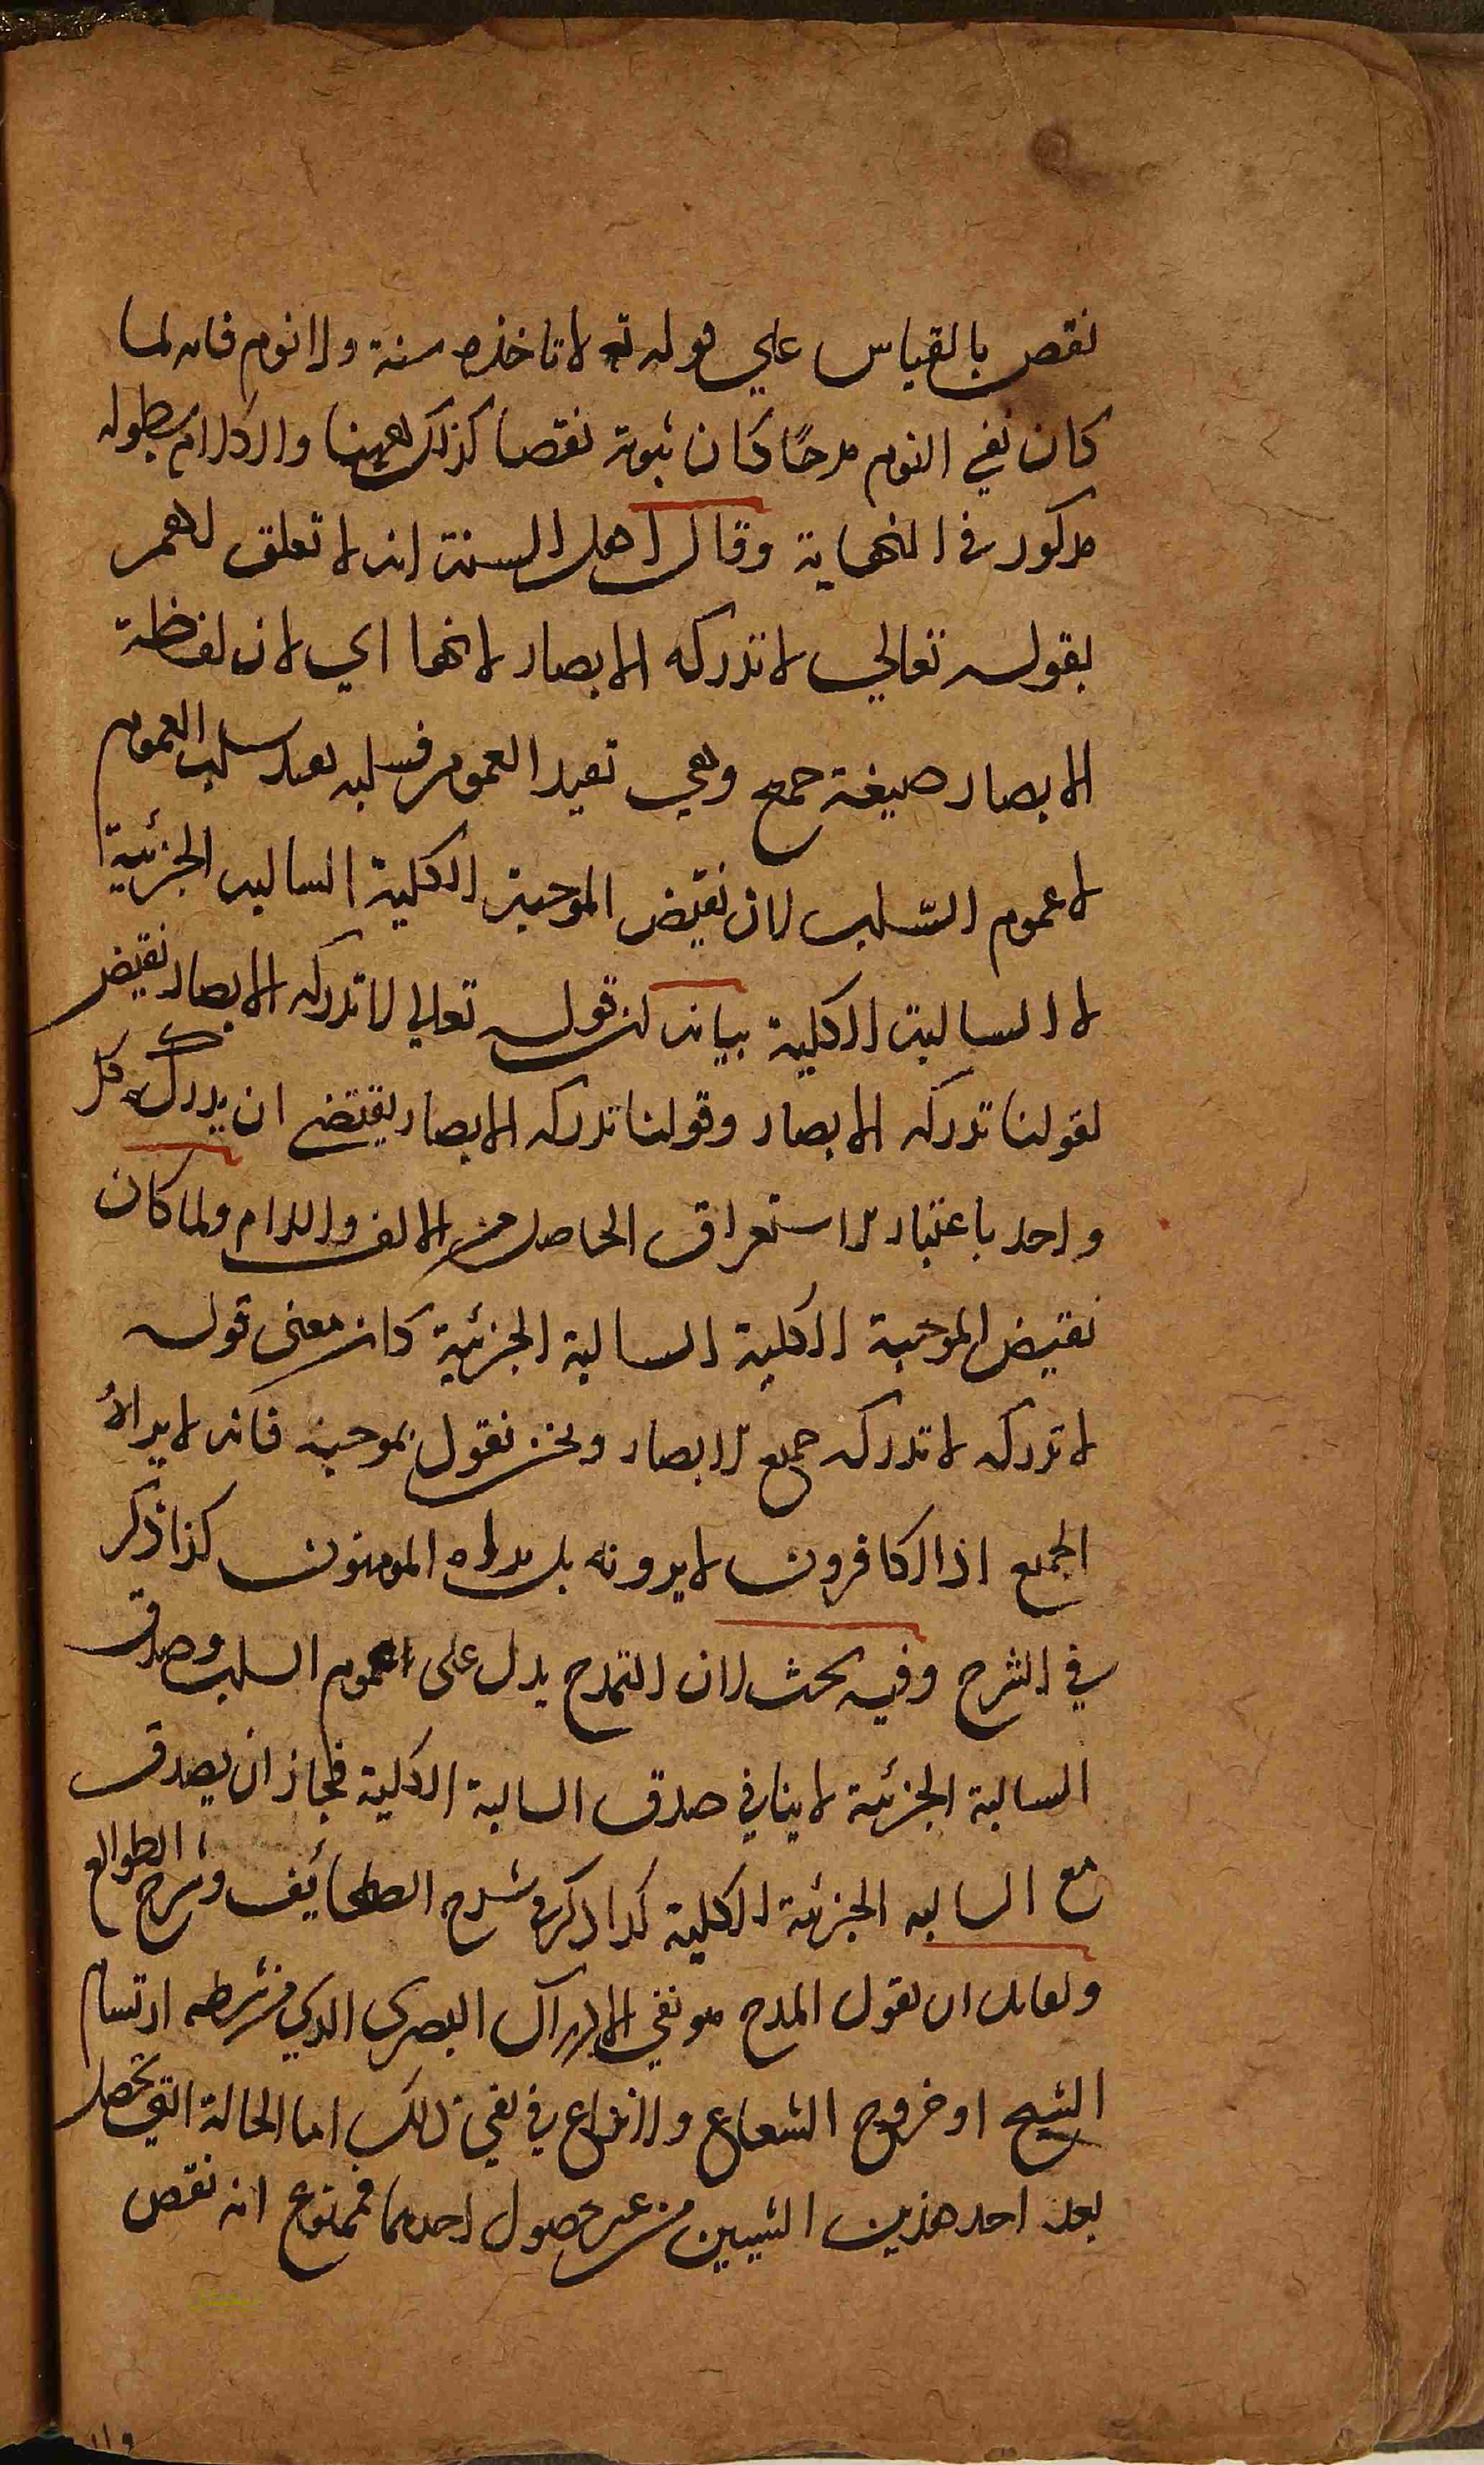 نقص بالقياس علي قوله تع لا تاخذه سنة ولا نوم فانه لما
كان نفي النوم مدحًا كان ثبوته نقصا كذلك ههنا والكلام بطوله
مذكور في النهاية وقال اهل السنة انه لا تعلق لهم
بقوله تعالي لا تدركه الابصار لانها اي لان لفظة
الابصار صيغة جمع وهي تفيد العموم فسلبه يفيد سلب العموم
لا عموم السّلب لان نقيض الموجبة الكلية السالبة الجزئية
لا السالبة الكلية بيانه ان قوله تعالي لا تدركه الابصار نقيض
لقولنا تدركه الابصار وقولنا تدركه الابصار يقتضي ان يدركه كل
واحد باعتبار الاستغراق الحاصل من الالف واللام ولما كان
نقيض الموجبة الكلية السالبة الجزئية كان معنى قوله
لا تدركه لا تدركه جميع الابصار ونحن نقول بموجبه فانه لا يراه
الجميع اذ الكافرون لا يرونه بل يراه المومنون كذا ذكر
في الشرح وفيه بحث لان التمدح يدل على عموم السلب وصدق
السالبة الجزئية لا ينافي صدق السالبة الكلية فجاز ان يصدق
مع السالبه الجزئية الكلية كذا ذكر في شرح الصحائف وشرح الطوالع
ولقائل ان يقول المدح هو نفي الادراك البصري الذي من شرطه ارتسام
الشبح او خروج الشعاع ولا نزاع في نفي ذلك اما الحالة التي تحصل
بعد احد هذين الشيئين من غير حصول احدهما فممنوع انه نقص